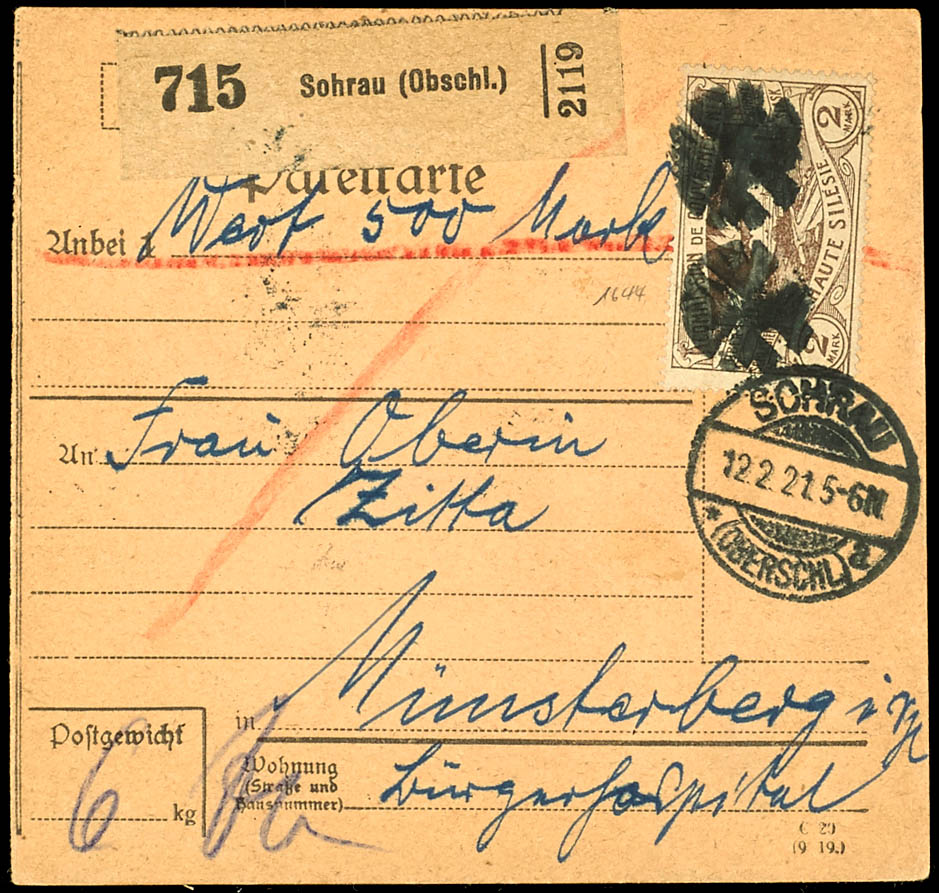 715 Sohrau (Obschl.) 2119
Paketkarte
Anbei 1 Wert 500 Mark
1644
2 MARK
HAUTE SILESIE
2 MARK
SOHRAU
12.2.21.5-6N
* (OBERSCHL.) a
An Frau Oberin
Zitta
in Münsterberg i
Postgewicht
6 kg
Wohnung
(Straße und
Hausnummer)
Bürgerhospital
C 20
(9 19.)